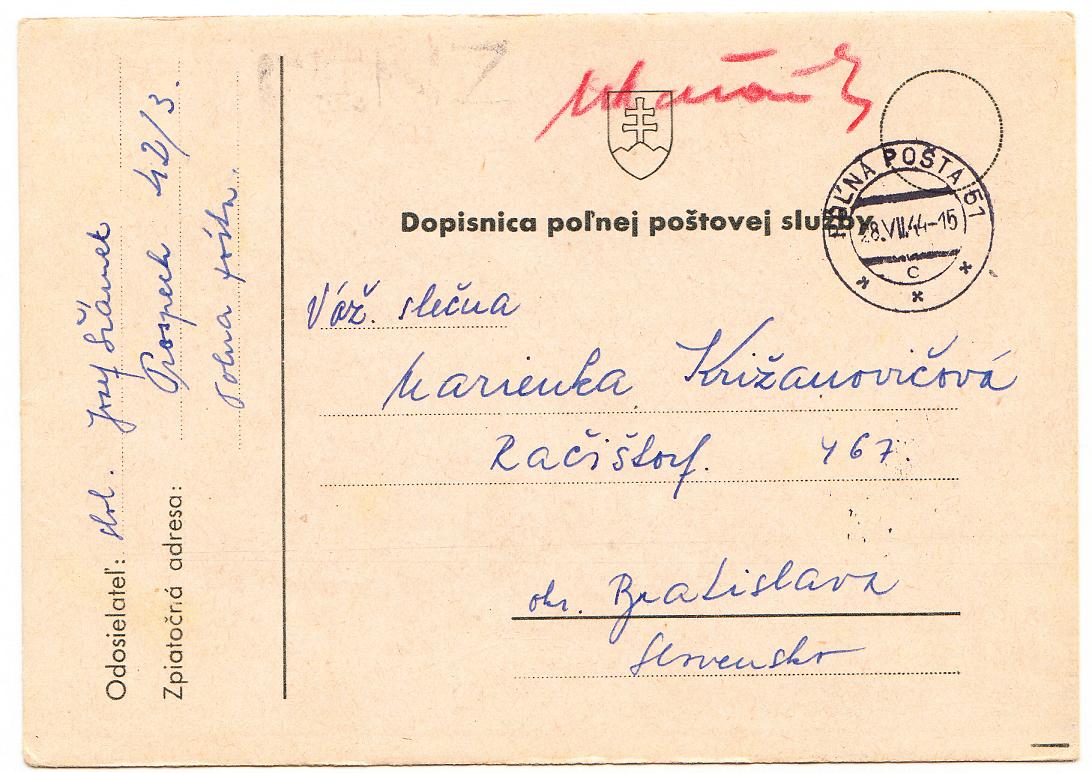 Dopisnica poľnej poštovej služby
POĽNÁ POŠTA 51
28.VII.44-15
c
Váž. slečna
Marienka Križanovičová
Račištorf. 467.
okr. Bratislava
Slovensko
Odosielateľ: slob. Jozef Šrámek
Prospech 42/3.
Zpiatočná adresa:
Poľná pošta.